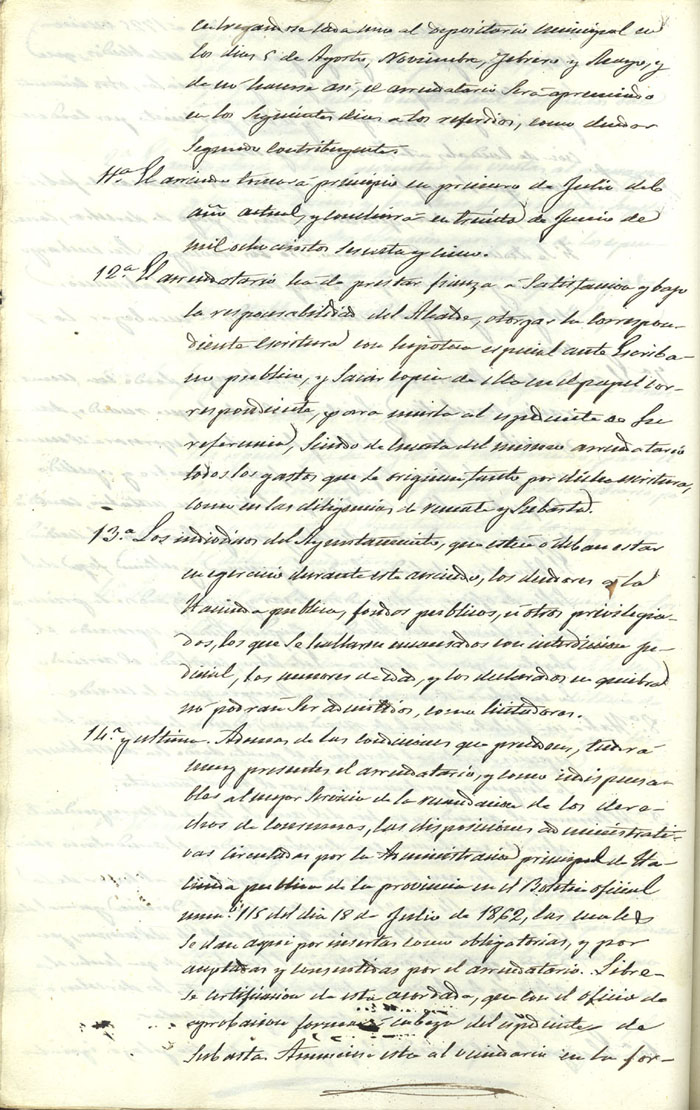 entregandose cada uno al depositario municipal en
los dias 5 de Agosto, Noviembre, Febrero y Mayo, y
de no hacerse asi, el arrendatario será apremiado
en los siguientes dias a los referidos, como deudor
segundo contribuyente.
11.ª El arriendo tendrá principio en primero de Julio del
año actual, y concluirá en treinta de Junio de
mil ochocientos sesenta y cinco.
12.ª El arrendatario ha de prestar fianza a satisfaccion y bajo
la responsabilidad del Alcalde, otorgar la correspon-
diente escritura con hipoteca especial ante Escriba-
no publico, y sacar copia de ella en el papel cor-
respondiente, para unirla al espediente de su
referencia, siendo de cuenta del mismo arrendatario
todos los gastos que se originen, tanto por dicha escritura,
como en las diligencias de remate y subasta.
13.ª Los individuos del Ayuntamiento, que esten o deban estar
en egercicio durante este arriendo, los deudores a la
Hacienda publica, fondos publicos, u otros privilegia-
dos, los que se hallaren encausados con interdiccion ju-
dicial, los menores de edad, y los declarados en quiebra
no podrán ser admitidos, como licitadores.
14.ª y ultima. Ademas de las condiciones que preceden, tendrá
muy presentes el arrendatario, y como indispensa-
bles al mejor servicio de la recaudacion de los dere-
chos de consumos, las disposiciones administrati-
vas circuladas por la Administracion principal de Ha-
cienda publica de la provincia en el Boletin oficial
num.º 115 del dia 18 de Julio de 1862, las cuales
se dan aqui por insertas como obligatorias, y por
aceptadas y consentidas por el arrendatario. Libre-
se certificacion de este acordado, que con el oficio de
aprobacion formará cabeza del espediente de
subasta. Anunciese esta al vecindario en la for-